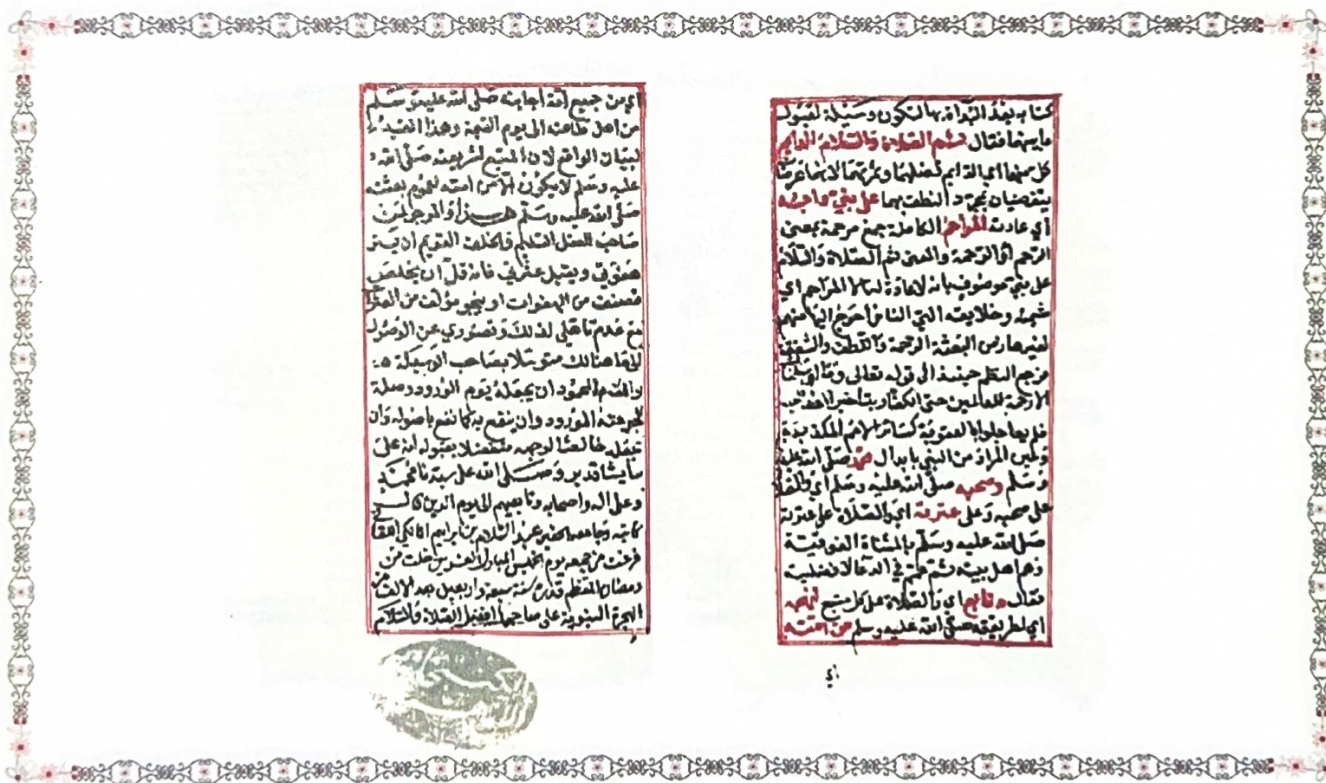 كتابه بعد البداة بها لتكون وسيلة لقبول
ما بينهما فقال ثم الصلاة والسلام الدايم
كل منهما اي الدايم فضلهما وثمرتهما لانهما عرضان
ينقضيان بمجرد النطق بهما على نبي واجبه
اي عادته المراحم الكاملة جمع مرحمة بمعنى
الرحم او الرحمة والمعنى ثم الصلاة والسلام
على نبي موصوف بانه لا عادة له الا المراحم اي
شيمه وخلايقه التي الناس احوج اليها منهم
لغيرها من البعثة الرحمة والتعطف والشفقة
مرجع النظم حينئذ الى قوله تعالى وما ارسلناك
الا رحمة للعالمين حتى الكفار بتاخير العقوبة
فلم يعاجلوا بالعقوبة كسائر الامم المكذبة
وبين المراد من النبي بابدال محمد صلى الله عليه
وسلم وصحبه صلى الله عليه وسلم اي والصلاة
على صحبه وعلى عترته اي والصلاة على عترته
صلى الله عليه وسلم بالمثناة الفوقية
وهم اهل بيته ثم عمم في الدعا لافضليته
فقال وتابع اي والصلاة على كل متبع لنهجه
اي لطريقته صلى الله عليه وسلم من امته
اي
اي من جميع امة اجابته صلى الله عليه وسلم
من اهل طاعته الى يوم القيمة وهذا القيد
لبيان الواقع لان المتبع لشريعته صلى الله
عليه وسلم لا يكون الا من امته لعموم بعثته
صلى الله عليه وسلم هذا والمرجو لمن
صاحب العقل السليم والخلق القويم ان يستر
هفوتي ويقبل عثرتي فانه قل ان يخلص
مصنف من الهفوات او ينجو مؤلف من العثرات
مع عدم تاهلي لذلك وقصوري عن الوصول
الى ما هنالك متوسلا بصاحب الوسيلة
والمقام المحمود ان يجعله يوم الورود وصلة
لحوضه المورود وان ينفع به كما نفع باصوله وان
يجعله خالصا لوجهه متفضلا بقبوله انه على
ما يشا قدير وصلى الله على سيدنا محمد
وعلى اله واصحابه وتابعيهم الى يوم الدين قال
كاتبه وجامعه الحقير عبد السلام بن ابراهيم المالكي اللقاني
فرغت من جمعه يوم الخميس المبارك لعشرين خلت من
رمضان المعظم قدره سنة سبعة واربعين بعد الالف من
الهجرة النبوية على صاحبها افضل الصلاة والسلام